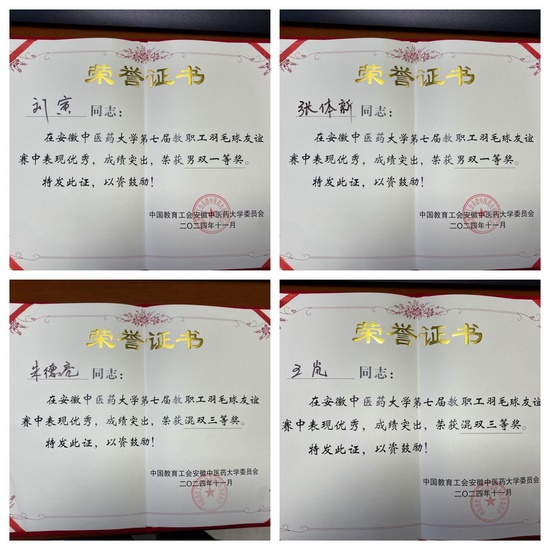 荣誉证书
刘寅 同志：
在安徽中医药大学第七届教职工羽毛球友谊
赛中表现优秀，成绩突出，荣获男双一等奖。
特发此证，以资鼓励！
中国教育工会安徽中医药大学委员会
二〇二四年十一月
荣誉证书
张体新 同志：
在安徽中医药大学第七届教职工羽毛球友谊
赛中表现优秀，成绩突出，荣获男双一等奖。
特发此证，以资鼓励！
中国教育工会安徽中医药大学委员会
二〇二四年十一月
荣誉证书
朱德亮 同志：
在安徽中医药大学第七届教职工羽毛球友谊
赛中表现优秀，成绩突出，荣获混双三等奖。
特发此证，以资鼓励！
中国教育工会安徽中医药大学委员会
二〇二四年十一月
荣誉证书
王岚 同志：
在安徽中医药大学第七届教职工羽毛球友谊
赛中表现优秀，成绩突出，荣获混双三等奖。
特发此证，以资鼓励！
中国教育工会安徽中医药大学委员会
二〇二四年十一月